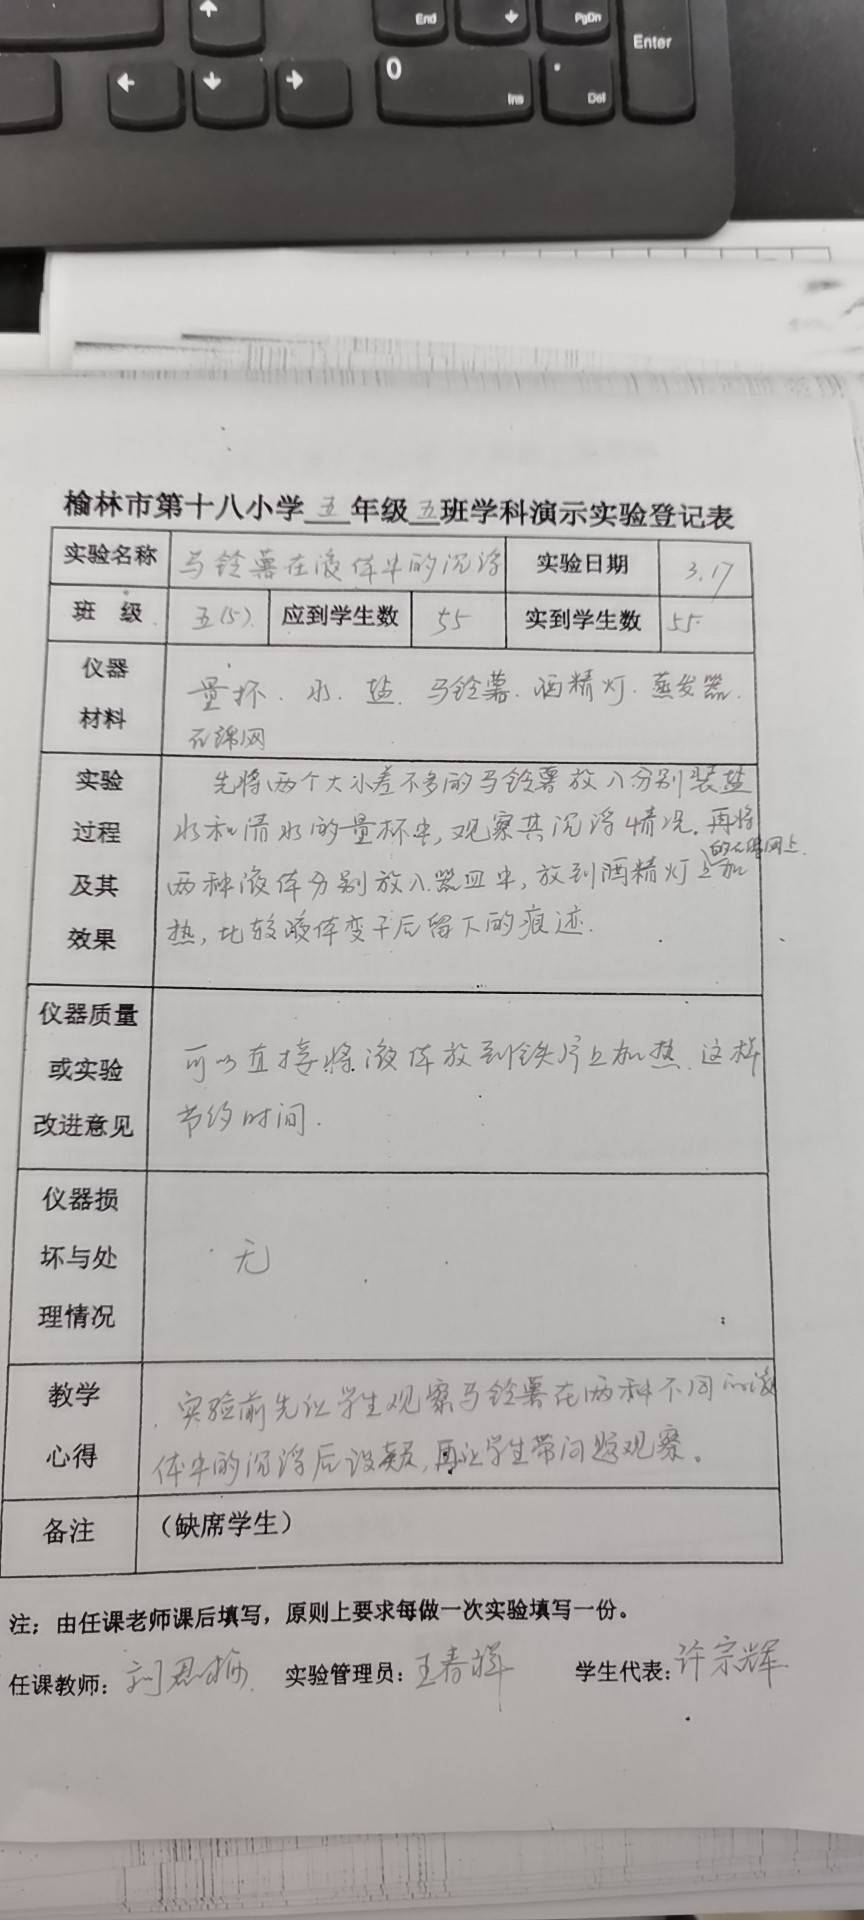 End
PgDn
Enter
0
Ins
Del
榆林市第十八小学 五 年级 五 班学科演示实验登记表
实验名称 马铃薯在液体中的沉浮 实验日期 3.17
班 级 五(5) 应到学生数 55 实到学生数 55
仪器
材料
量杯、水、盐、马铃薯、酒精灯、蒸发器、
石绵网
实验
过程
及其
效果
先将两个大小差不多的马铃薯放入分别装盐
水和清水的量杯中,观察其沉浮情况.再将
的石绵网上
两种液体分别放入器皿中,放到酒精灯上加
热,比较液体变干后留下的痕迹.
仪器质量
或实验
改进意见
可以直接将液体放到铁片上加热.这样
节约时间.
仪器损
坏与处
理情况
无
教学
心得
实验前先让学生观察马铃薯在两种不同的液
体中的沉浮后设疑,再让学生带问题观察。
备注 (缺席学生)
注:由任课老师课后填写,原则上要求每做一次实验填写一份。
任课教师: 实验管理员:王春辉 学生代表:许宗辉